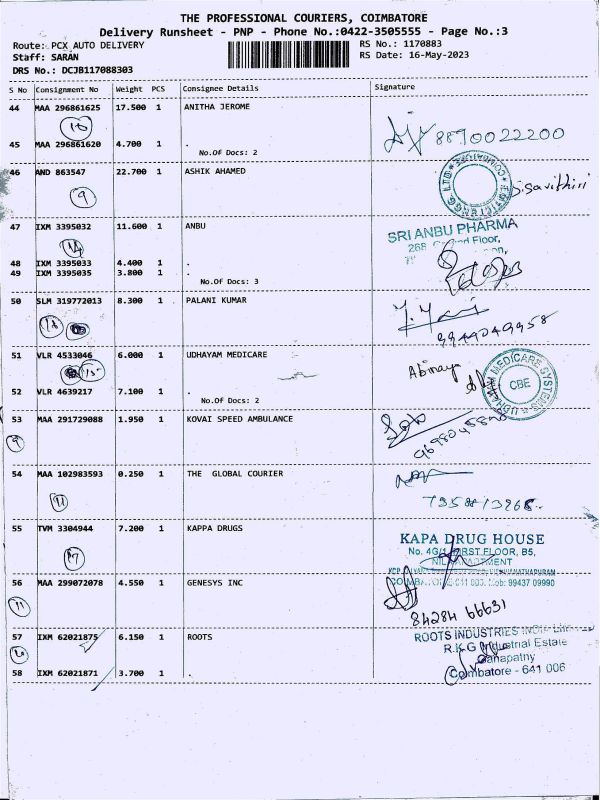 THE PROFESSIONAL COURIERS, COIMBATORE
Delivery Runsheet - PNP - Phone No.:0422-3505555 - Page No.:3
Route: PCX AUTO DELIVERY RS No.: 1170883
Staff: SARAN RS Date: 16-May-2023
DRS No.: DCJB117088303
S No Consignment No Weight PCS Consignee Details Signature
44 MAA 296861625 17.500 1 ANITHA JEROME
8870022200
45 MAA 296861620 4.700 1 .
No.Of Docs: 2
46 AND 863547 22.700 1 ASHIK AHAMED
9
47 IXM 3395032 11.600 1 ANBU
SRI ANBU PHARMA
Floor,
14
48 IXM 3395033 4.400 1 .
49 IXM 3395035 3.800 1 .
No.Of Docs: 3
50 SLM 319772013 8.300 1 PALANI KUMAR
9949049958
51 VLR 4533046 6.000 1 UDHAYAM MEDICARE
15
Abinaya
UDHAYAM MEDICARE SYSTEMS
CBE
52 VLR 4639217 7.100 1 .
No.Of Docs: 2
53 MAA 291729088 1.950 1 KOVAI SPEED AMBULANCE
9
54 MAA 102983593 0.250 1 THE GLOBAL COURIER
11
55 TVM 3304944 7.200 1 KAPPA DRUGS
17
KAPA DRUG HOUSE
No. 4G/1 FIRST FLOOR, B5,
56 MAA 299072078 4.550 1 GENESYS INC
11
84284 66631
57 IXM 62021875 6.150 1 ROOTS
ROOTS INDUSTRIES INDIA
R.K.G Industrial Estate
Ganapathy
Coimbatore - 641 006
58 IXM 62021871 3.700 1 .